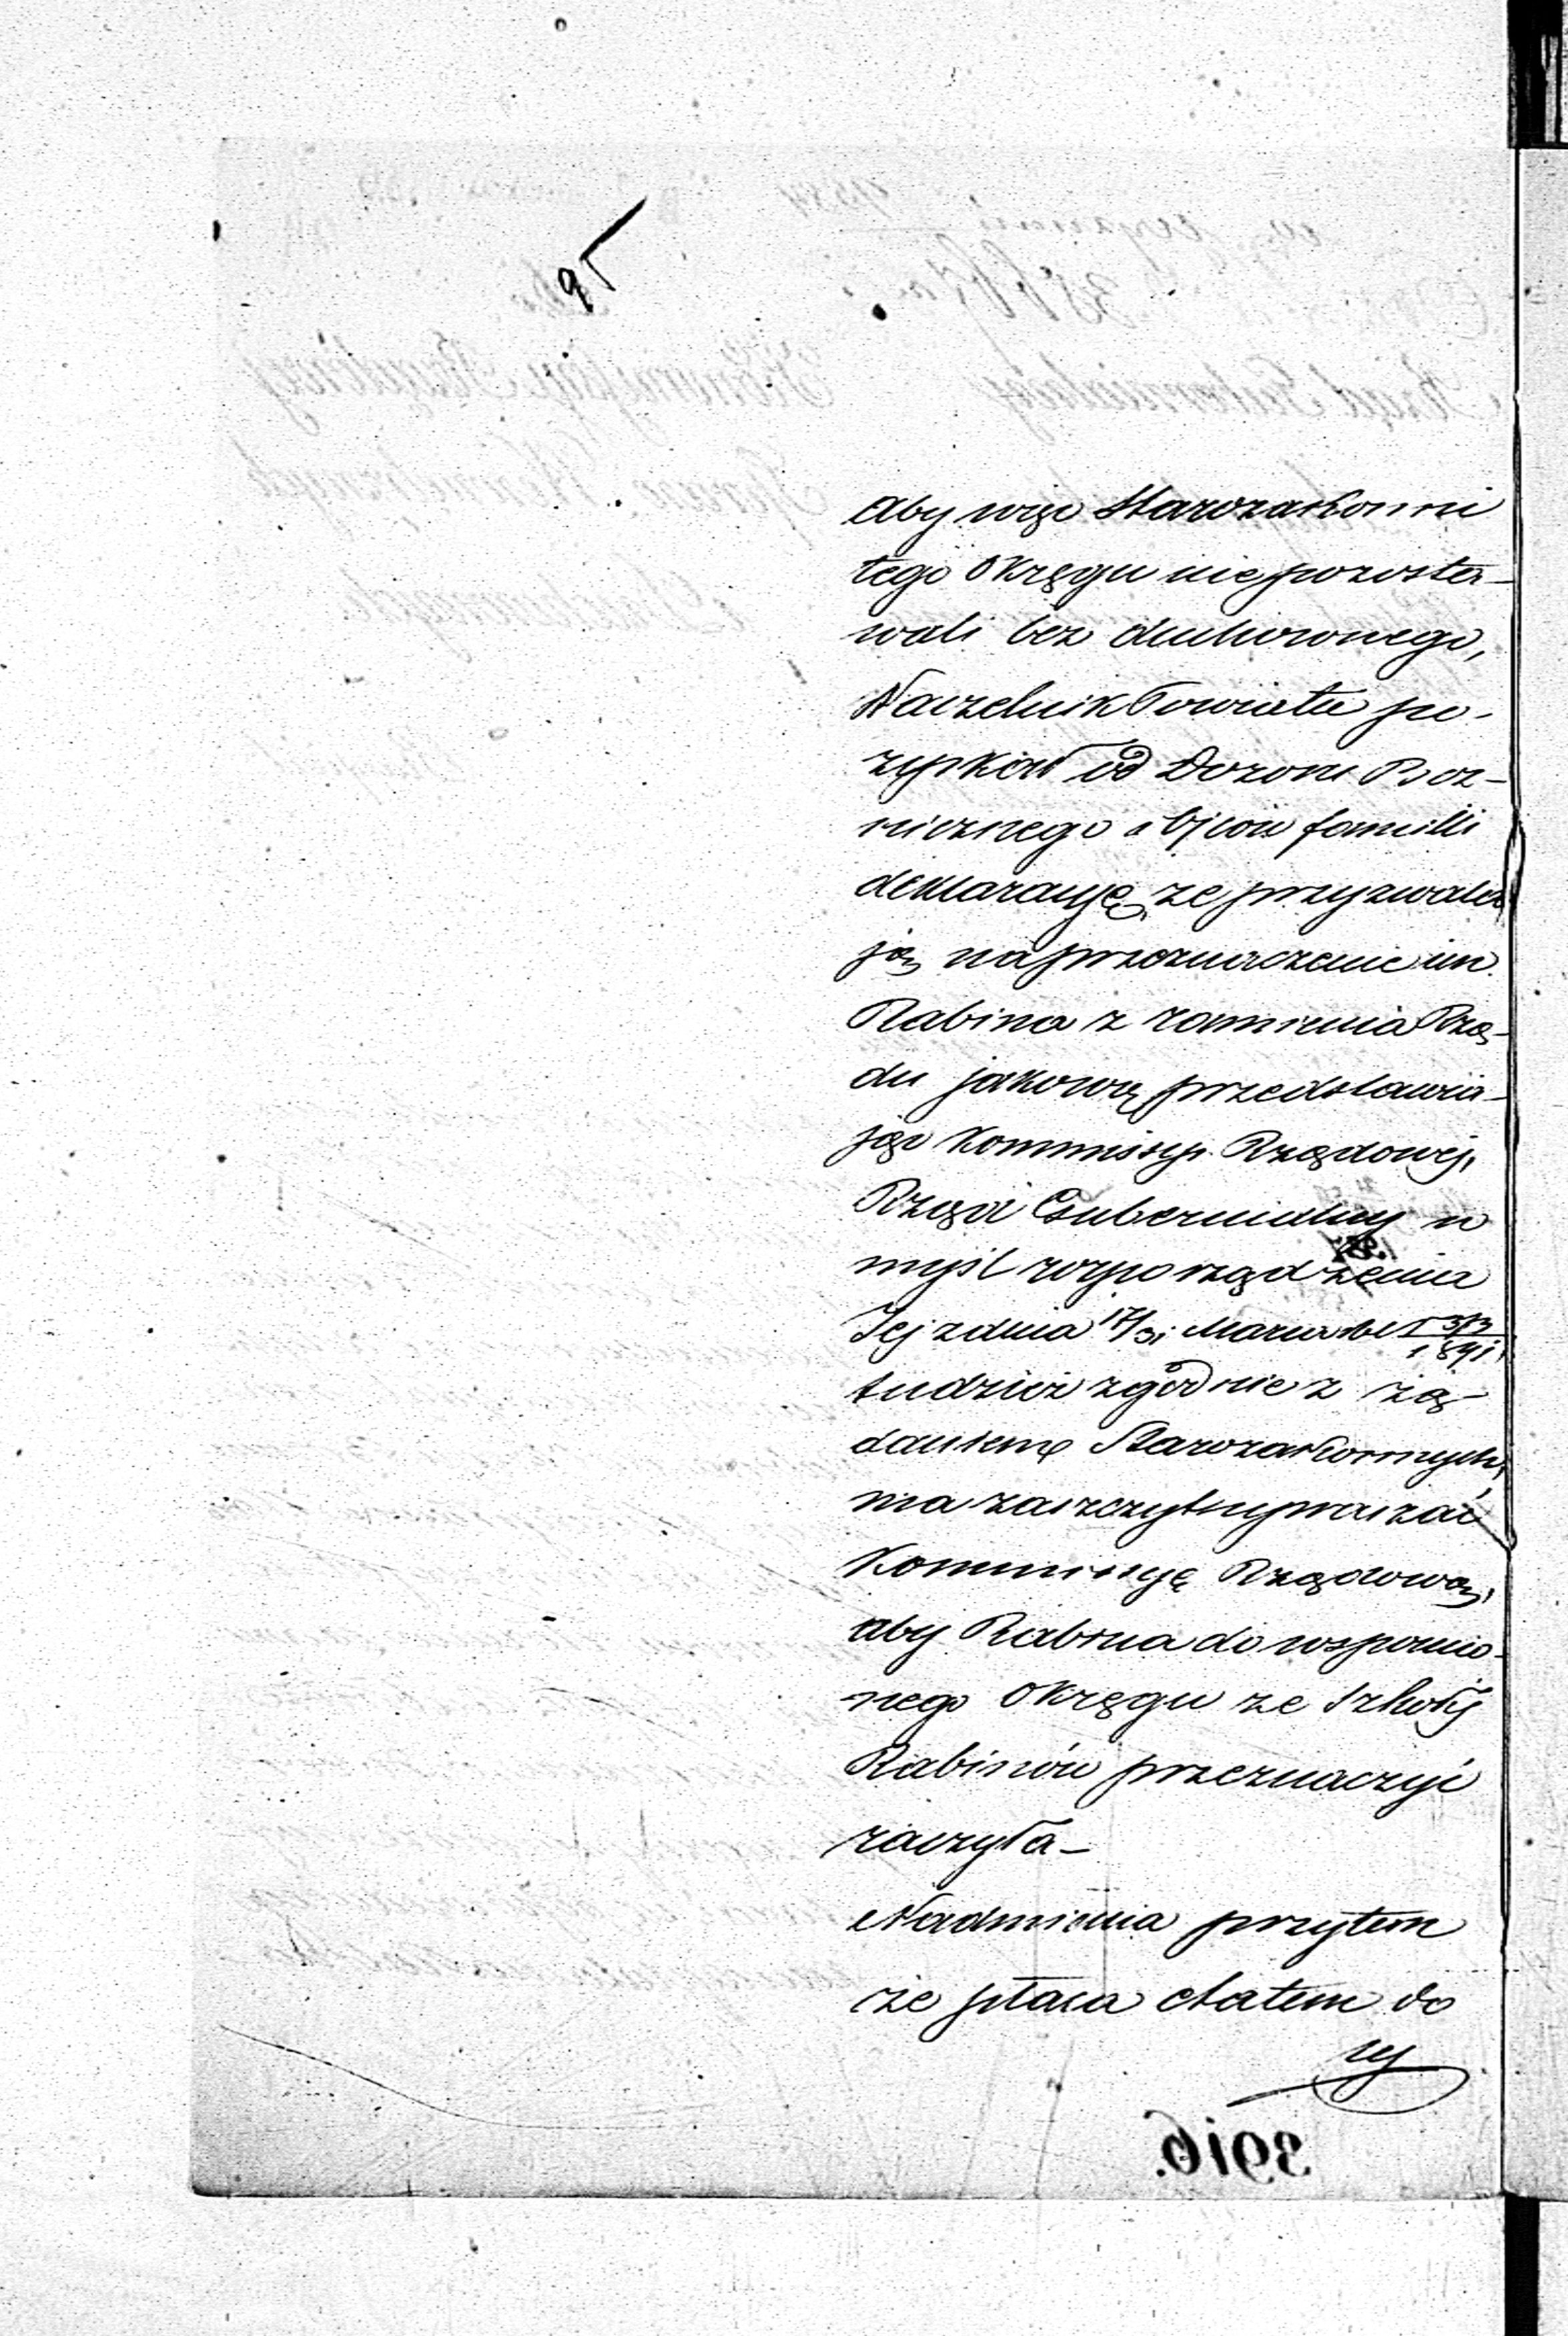 95
Aby więc Starozakonni
tego Okręgu nie pozosta-
wali bez duchownego,
Naczelnik Powiatu po-
zyskał od Dozoru Boż-
niczego i Ojców familii
deklaracyę, że przyzwala
ją na przeznaczenie im
Rabina z ramienia Rzą-
du jakową przedstawia-
jąc Kommissyi Rządowej,
Rząd Gubernialny w
myśl rozporządzenia
Jej z dnia 17/31 Marca rb
tudzież zgodnie z żą-
daniem Starozakonnych,
ma zaszczyt upraszać
Kommissyę Rządową,
aby Rabina do wspomnio-
nego Okręgu ze Szkoły
Rabinów przeznaczyć
raczyła –
Nadmienia przytem
że płaca etatem do
3916.